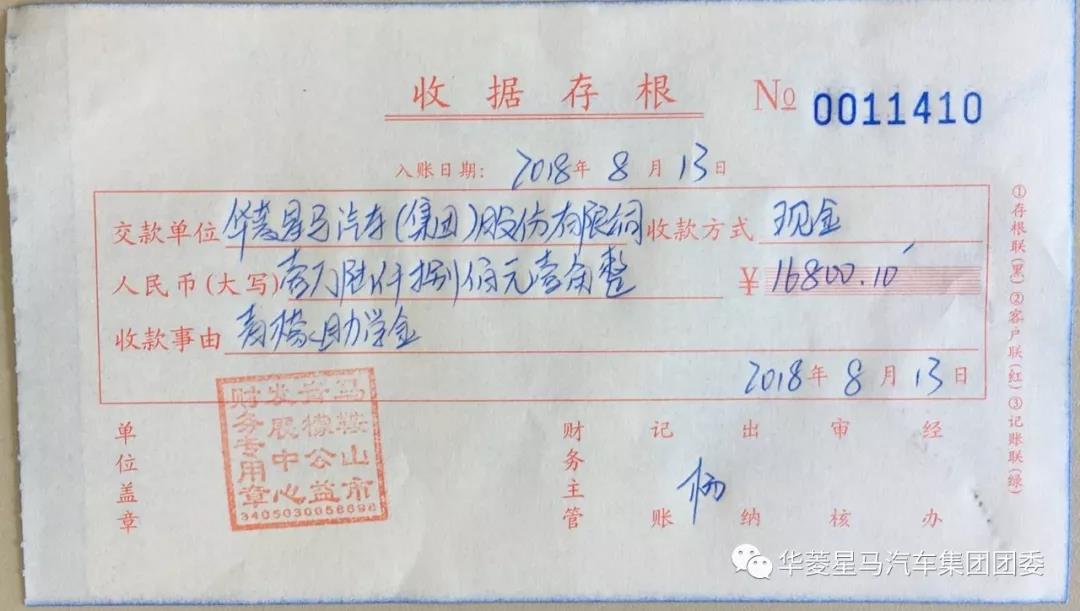 收据存根 № 0011410
入账日期: 2018年8月13日
交款单位 华菱星马汽车(集团)股份有限公司 收款方式 现金
人民币(大写) 壹万陆仟捌佰元壹角整 ¥ 16800.10
收款事由 青檬助学金
2018年8月13日
①存根联(黑)②客户联(红)③记账联(绿)
单位盖章 财务主管 记账 出纳 审核 经办
杨
马鞍山市
青檬公益
发展中心
财务专用章
华菱星马汽车集团团委